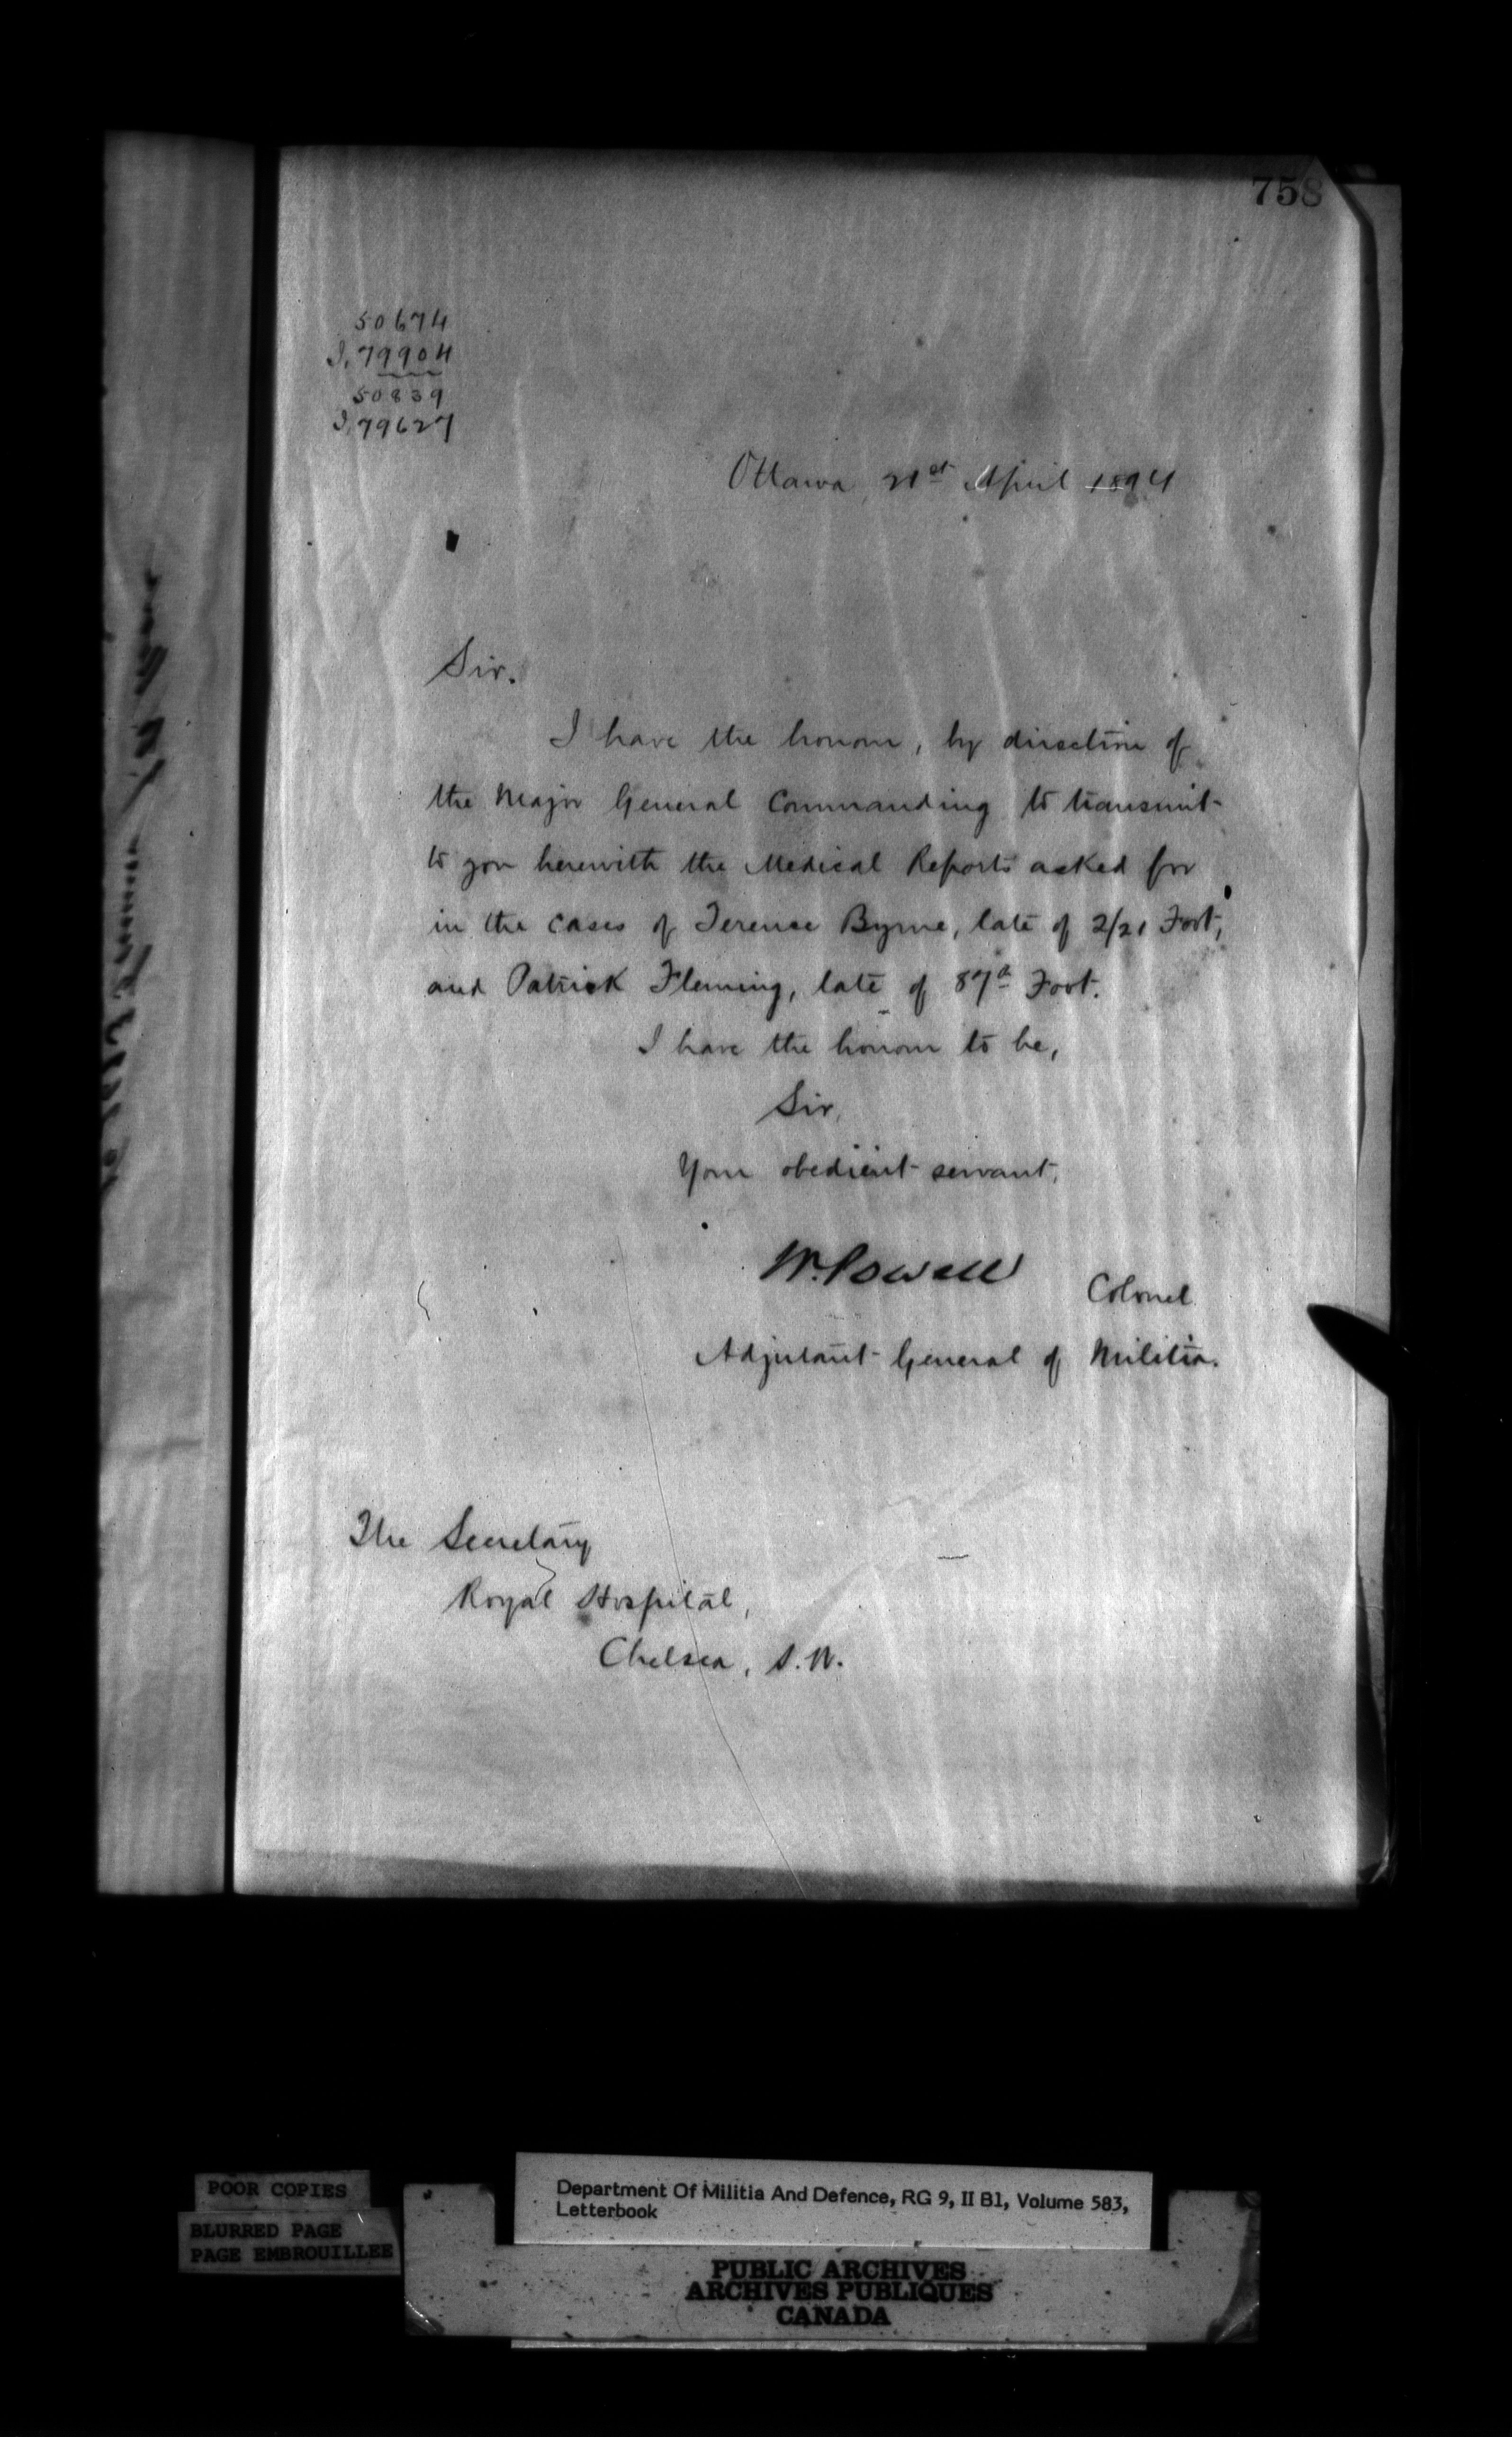 758
50674
J. 79904
50839
J. 79627
Ottawa, 21st April 1894
Sir.
I have the honour, by direction of
the Major General Commanding to transmit
to you herewith the Medical Reports asked for
in the cases of Terence Byrne, late of 2/21 Foot,
and Patrick Fleming, late of 87th Foot.
I have the honour to be,
Sir,
Your obedient servant,
W. Powell
Colonel
Adjutant General of Militia.
The Secretary
Royal Hospital,
Chelsea, S.W.
POOR COPIES
BLURRED PAGE
PAGE EMBROUILLEE
Department Of Militia And Defence, RG 9, II B1, Volume 583,
Letterbook
PUBLIC ARCHIVES
ARCHIVES PUBLIQUES
CANADA